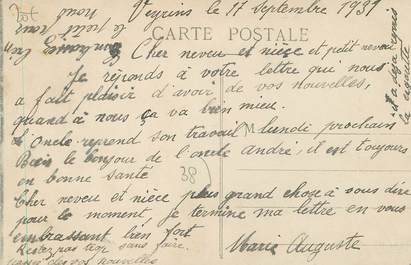 Veyrins le 17 septembre 1931
CARTE POSTALE
Cher neveu et nièce et petit neveu
Je réponds à votre lettre qui nous
a fait plaisir d'avoir de vos nouvelles,
quand à nous ça va bien mieu.
L'oncle reprend son travail lundi prochain
M
Bois le bonjour de l'oncle andré, il est toujours
en bonne santé
38
Cher neveu et nièce plus grand chose à vous dire
pour le moment, je termine ma lettre en vous
embrassant bien fort
Marie Auguste
Restez pas ton sans faire
passer des vos nouvelles
il a déjà repris